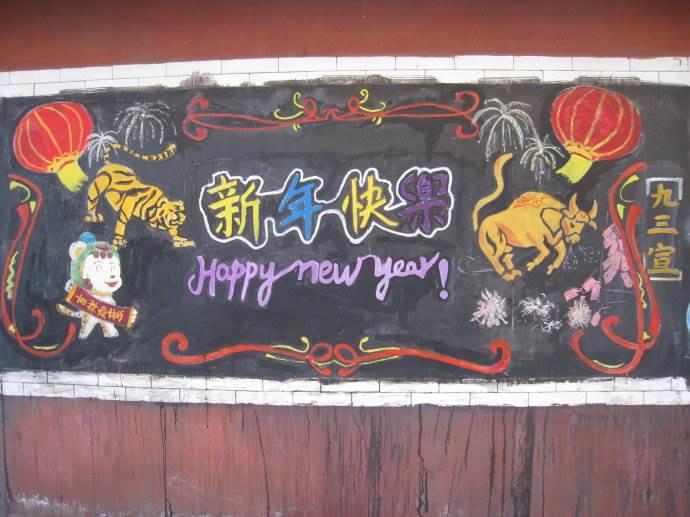 新年快樂
Happy new year!
九三宣